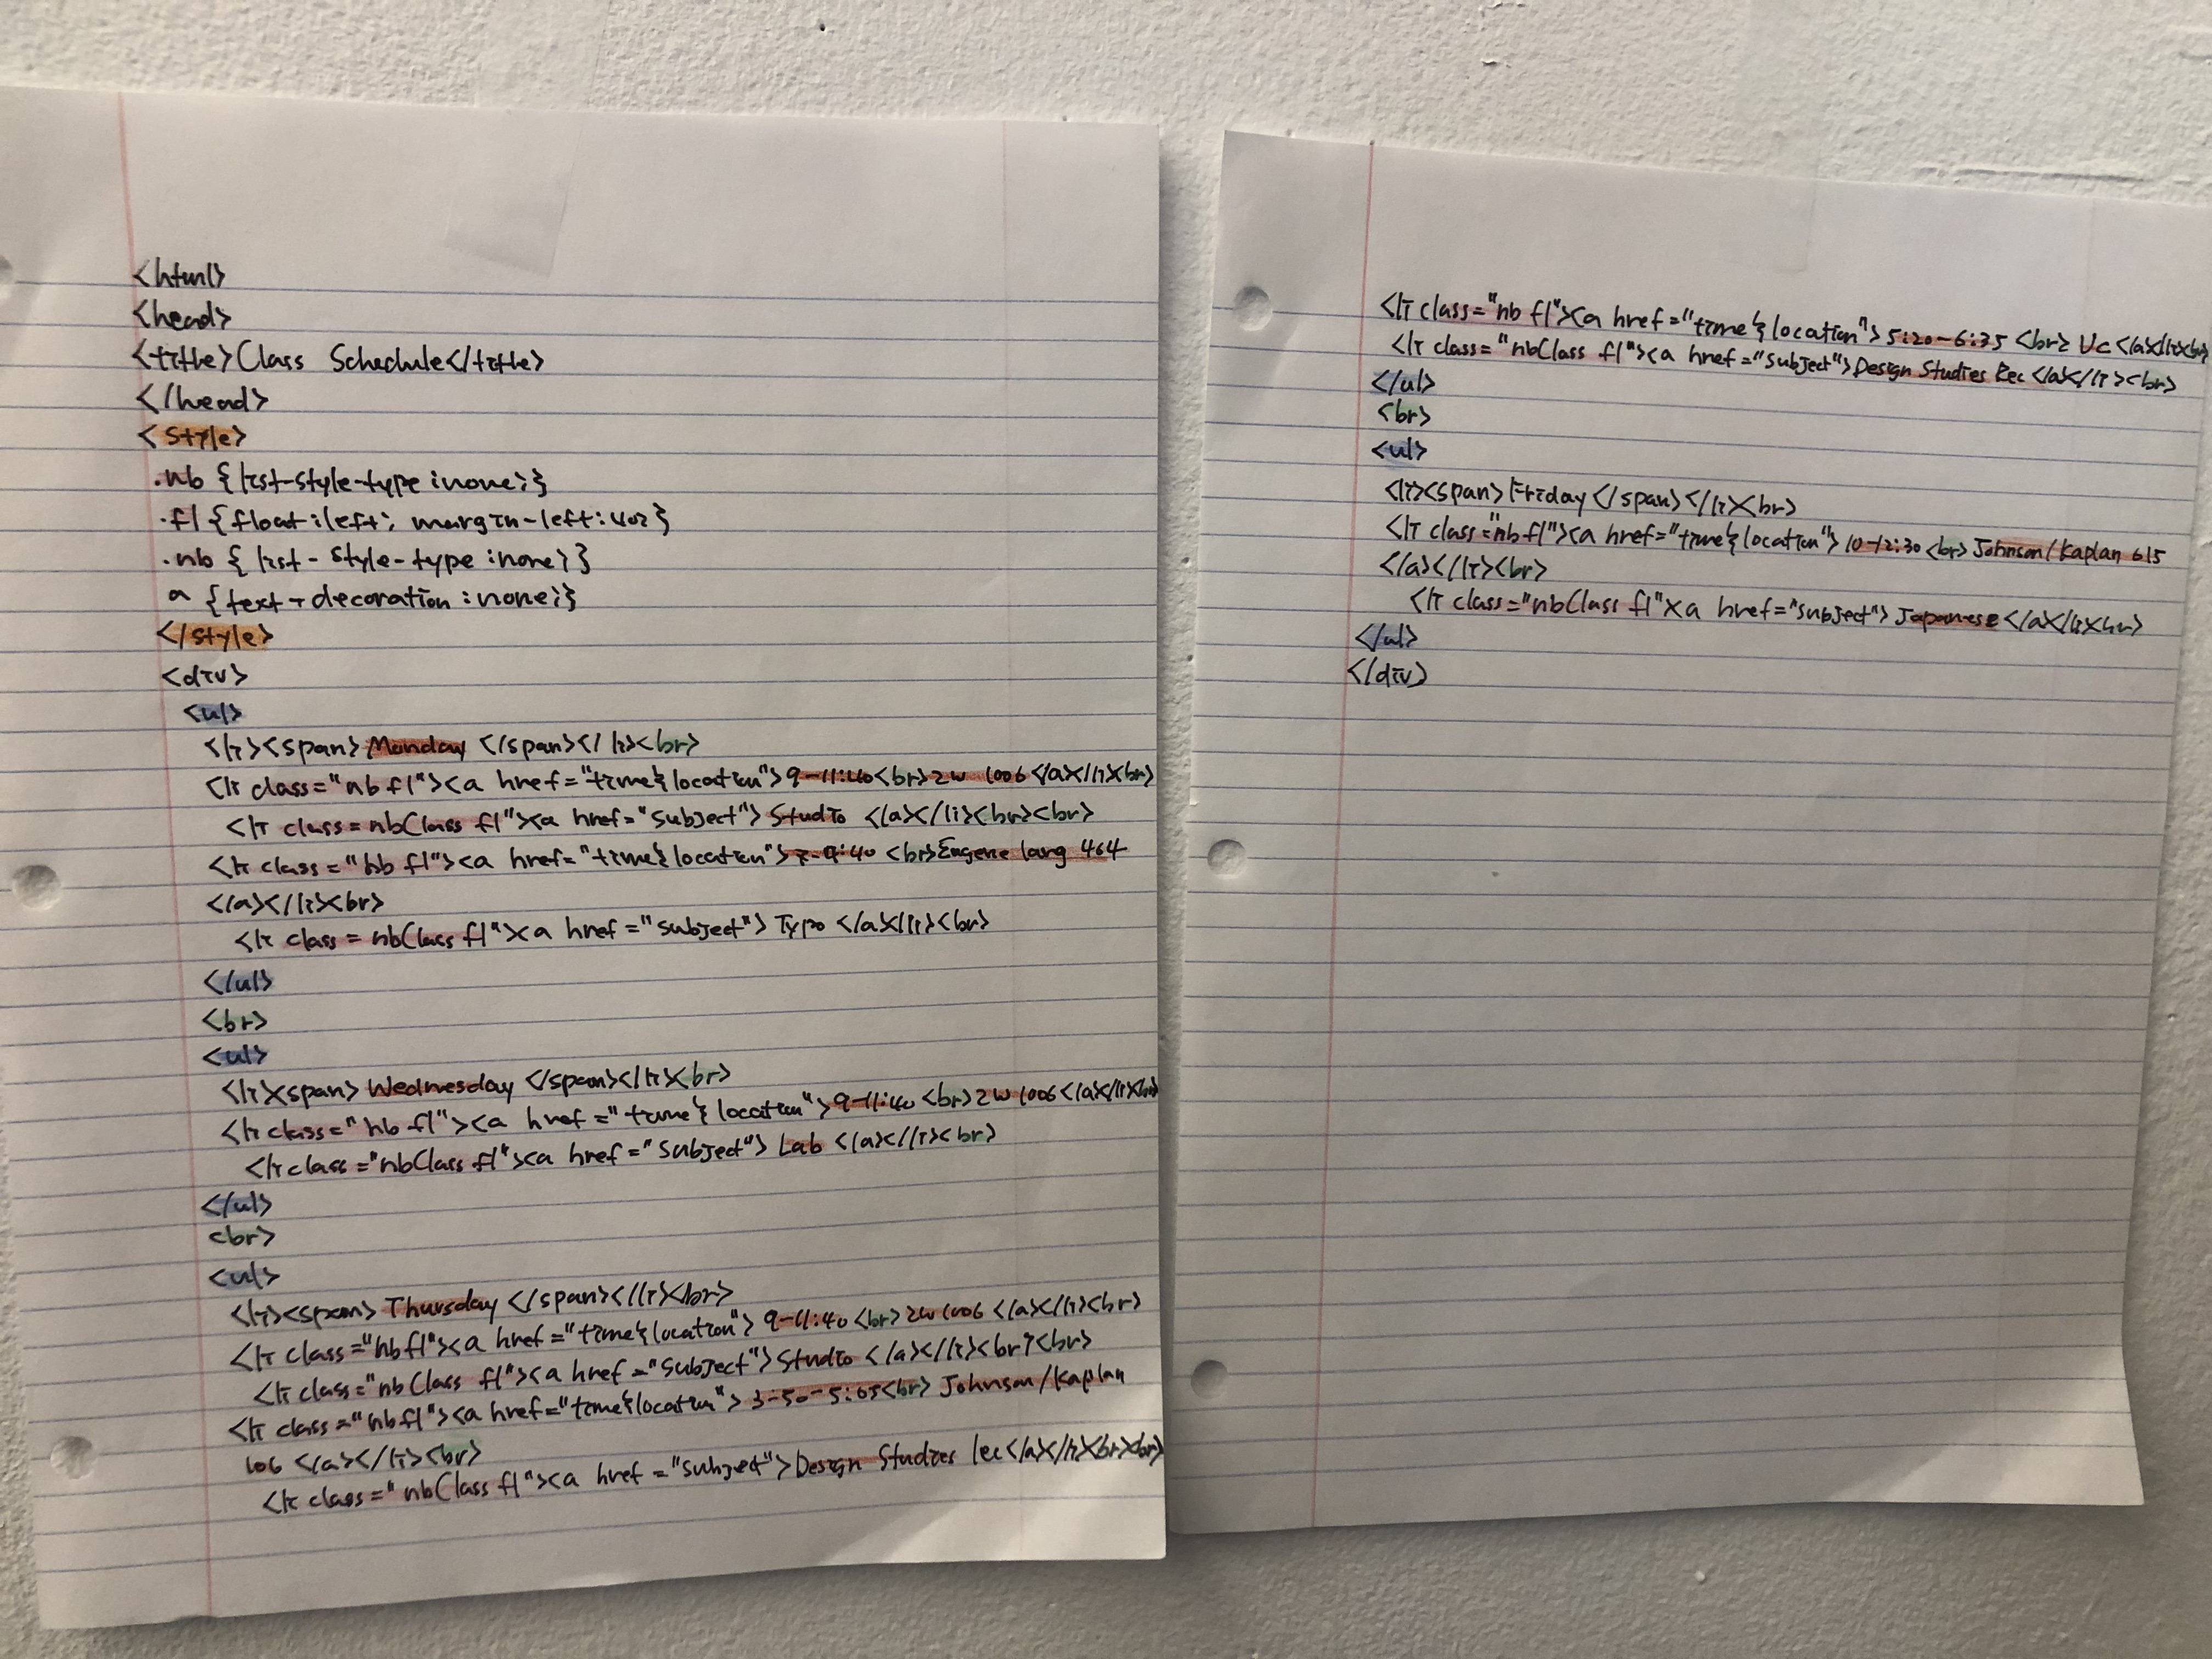 <html>
<head>
<title>Class Schedule</title>
</head>
<style>
.nb {list-style-type:none;}
.fl {float:left; margin-left:40;}
.nb {list-style-type:none;}
a {text-decoration:none;}
</style>
<div>
<ul>
<li><span>Monday </span></li><br>
<li class="nb fl"><a href="time&location">9-11:40<br>2w 1006</a></li><br>
<li class=nbClass fl"><a href="subject">Studio </a></li><br><br>
<li class="nb fl"><a href="time&location">7-9:40 <br>Eugene lang 464
</a></li><br>
<li class=nbClass fl"><a href="subject"> Typo </a></li><br>
</ul>
<br>
<ul>
<li><span>Wednesday </span></li><br>
<li class="nb fl"><a href="time&location">9-11:40 <br>2w 1006</a></li><br>
<li class="nbClass fl"><a href="subject"> Lab </a></li><br>
</ul>
<br>
<ul>
<li><span>Thursday </span></li><br>
<li class="nb fl"><a href="time&location"> 9-11:40 <br>2w 1006 </a></li><br>
<li class="nbClass fl"><a href="subject">Studio </a></li><br><br>
<li class="nb fl"><a href="time&location"> 3-50-5:05<br> Johnson/Kaplan
106 </a></li><br>
<li class="nbClass fl"><a href="subject">Design Studies lec</a></li><br><br>
<li class="nb fl"><a href="time&location">5:20-6:35 <br> Uc </a></li><br>
<li class="nbClass fl"><a href="subject">Design Studies Rec </a></li><br>
</ul>
<br>
<ul>
<li><span>Friday </span></li><br>
<li class="nb fl"><a href="time&location"> 10-12:30 <br> Johnson/Kaplan 615
</a></li><br>
<li class="nbClass fl"><a href="subject"> Japanese </a></li><br>
</ul>
</div>